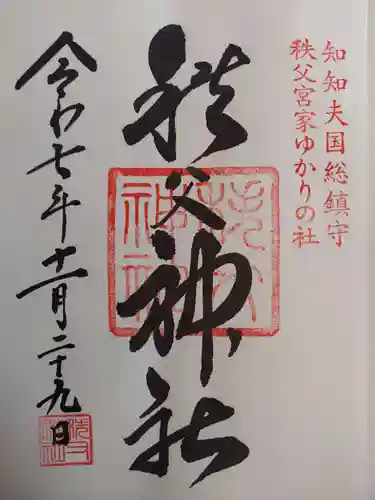 知知夫国総鎮守
秩父宮家ゆかりの社
秩父神社
令和七年十一月二十九日